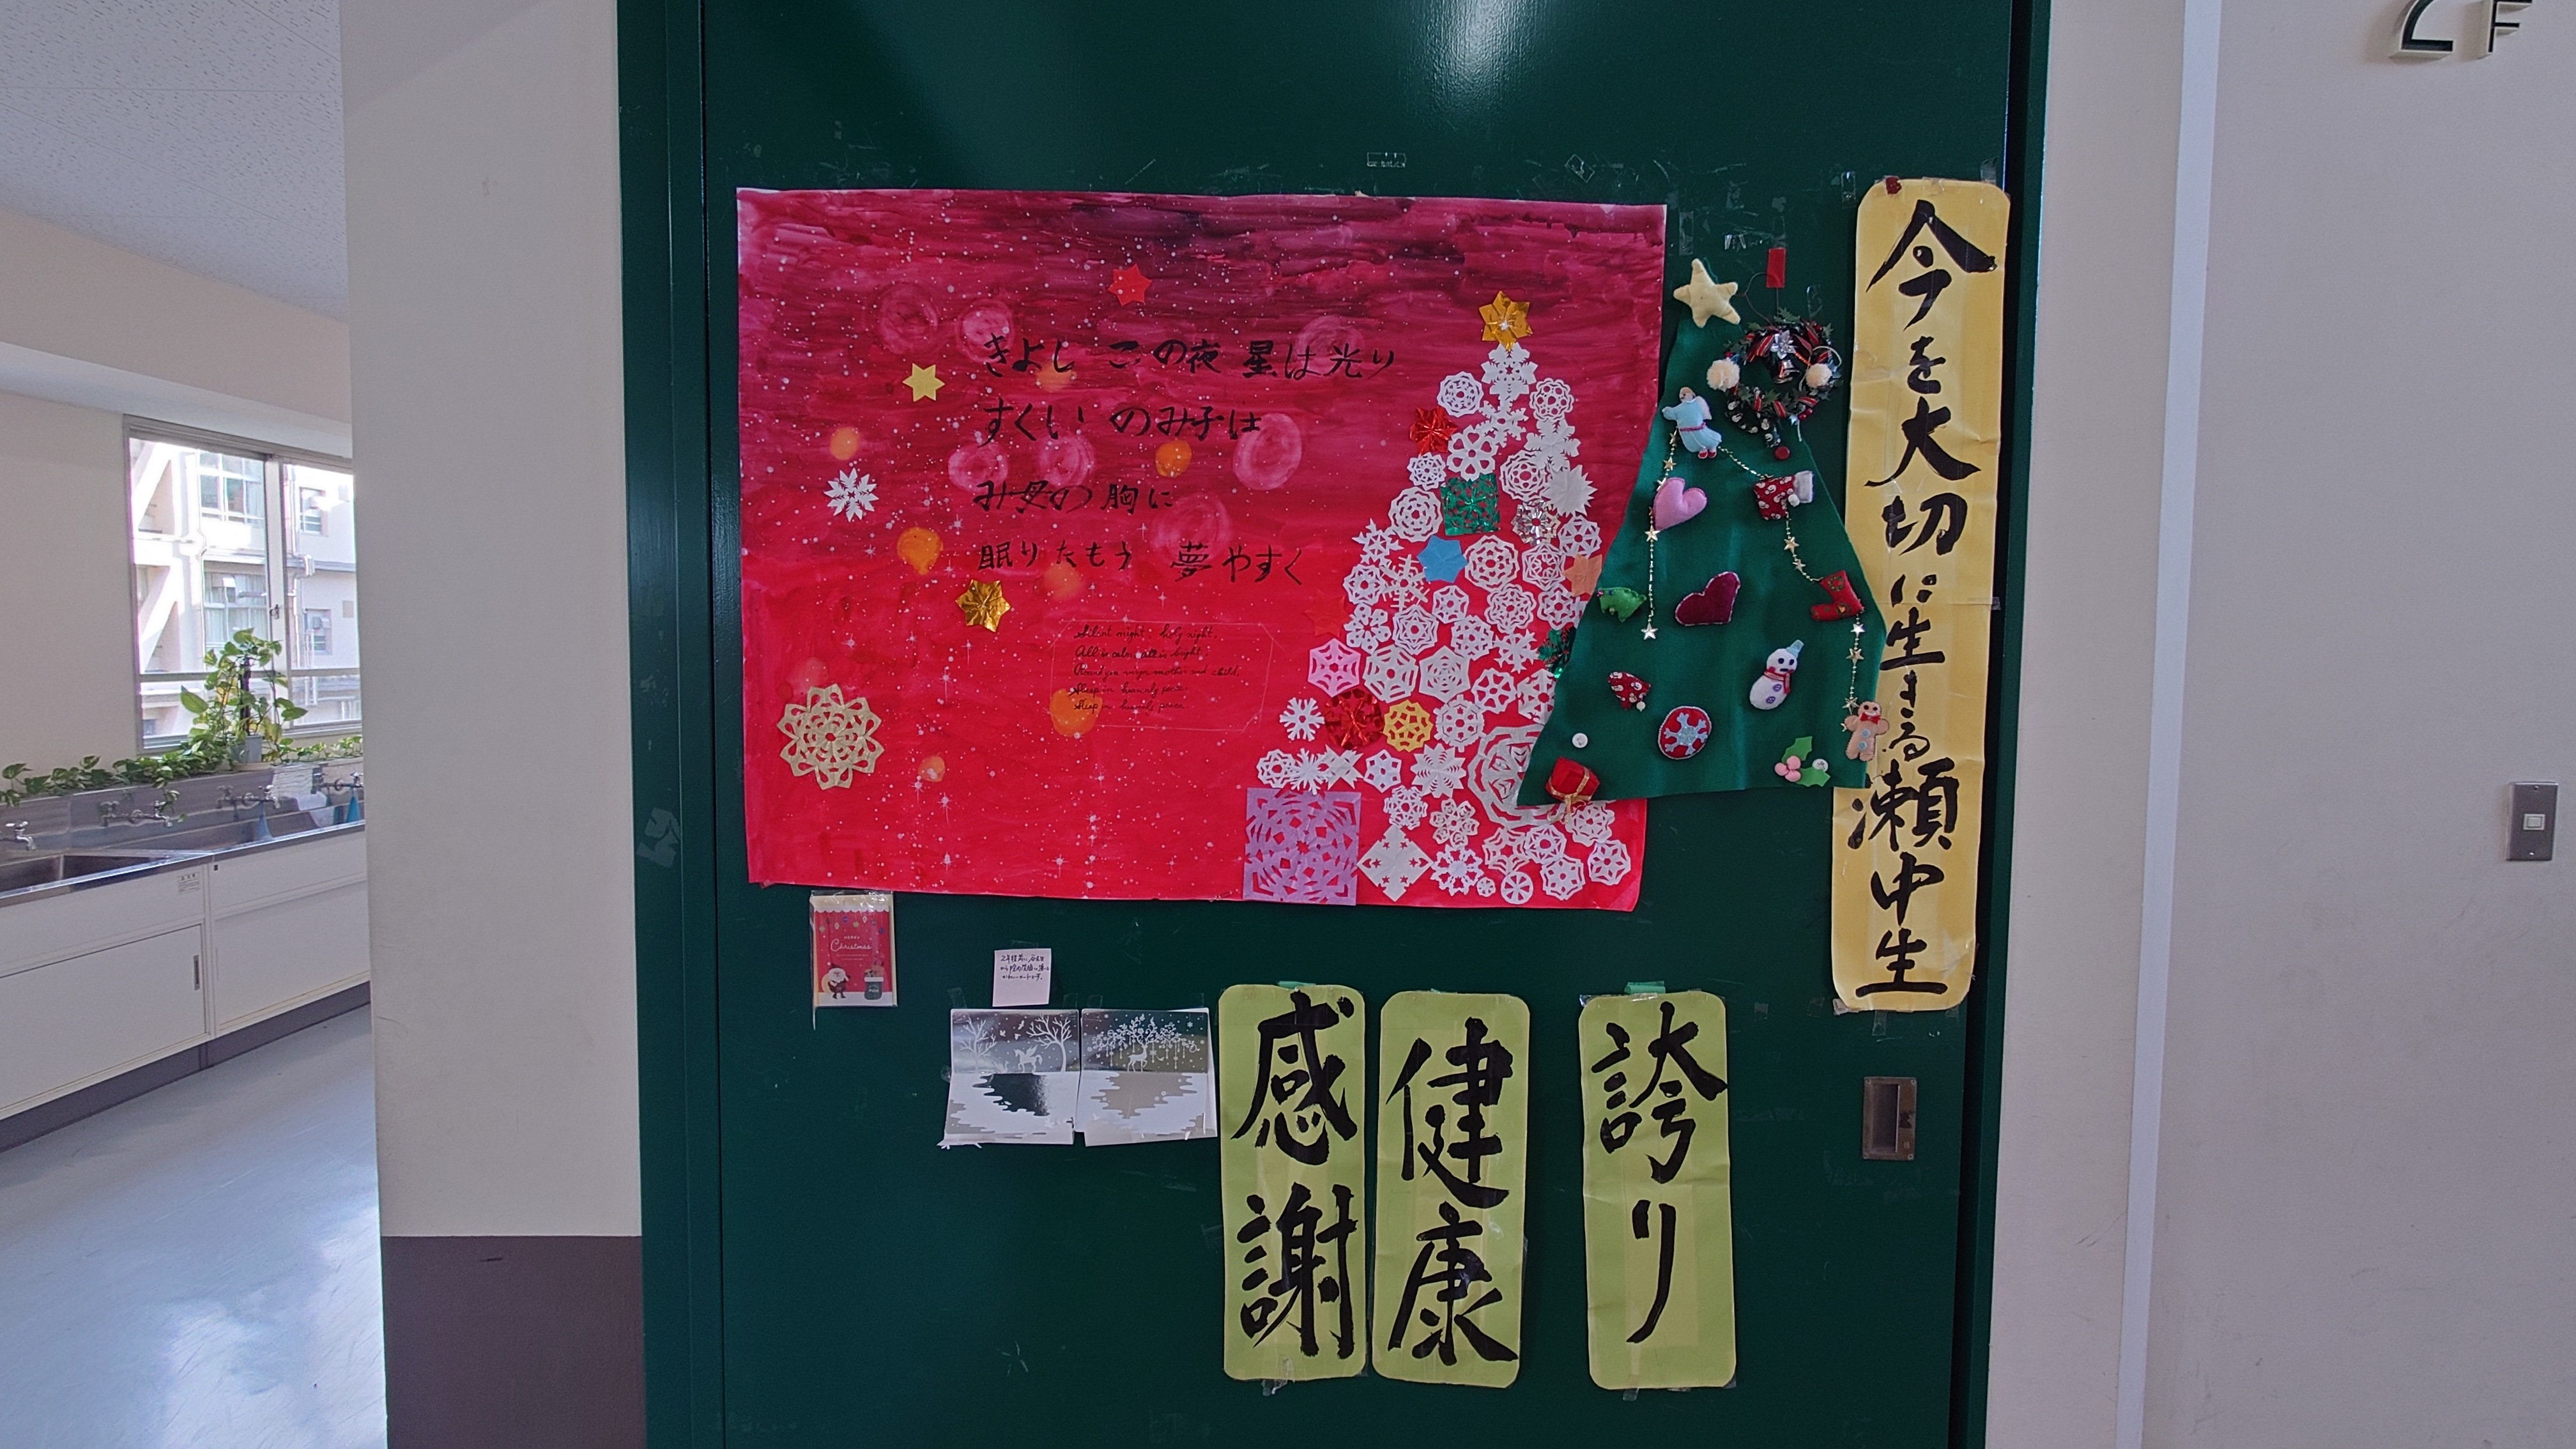 2F
きよし この夜 星は光り
すくい のみ子は
み母の 胸に
眠りたもう 夢やすく
Silent night, holy night.
All is calm, all is bright.
mother and child.
Sleep in heavenly peace.
Sleep in
今を大切に生きる瀬中生
Christmas
感謝
健康
誇り